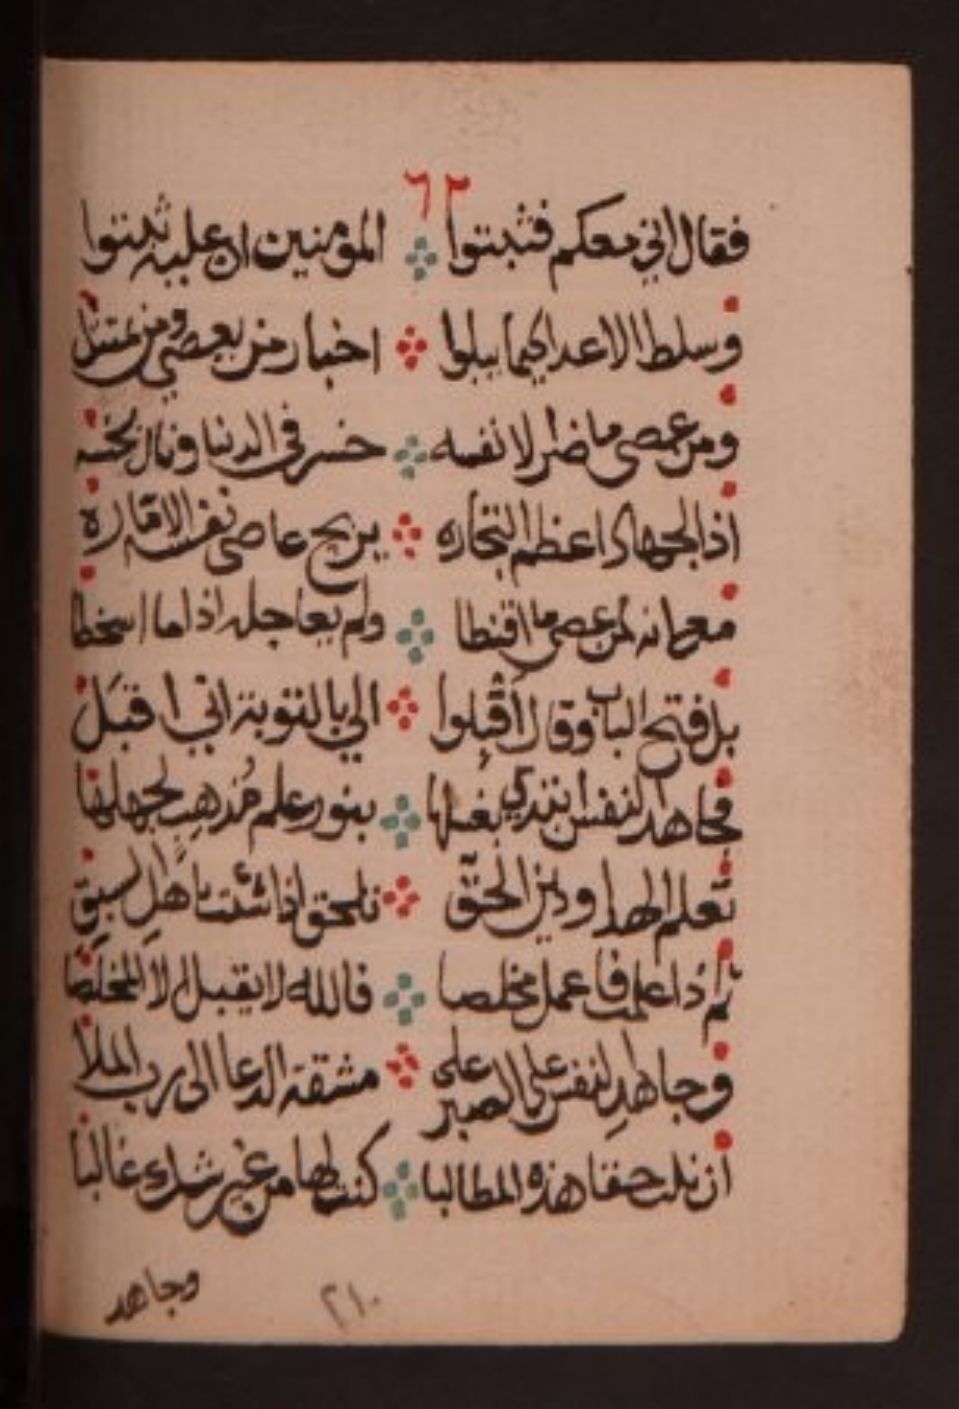 ٦٢
فقال اني معكم فثبتوا المؤمنين ان عليه ثبتوا
وسلط الاعدا كيما يبلوا اخبار من يعصي ومن يمتثل
ومن عصى ما ضر الا نفسه خسر في الدنيا ونال بخسه
اذ الجهاد اعظم التجاره يربح عاصى نفسه الامارة
مع انه لمن عصى ما اقنطا ولم يعاجله اذا ما اسخطا
بل فتح الباب وقال اقبلوا الي بالتوبة اني اقبل
فجاهد لنفس تبتدي بغسلها بنور علم مذهب لجهلها
تعلم الهدا ودين الحق تلحق اذا شئت باهل السبق
ثم ذا علمت فاعمل مخلصا فالله لا يقبل الا المخلصا
وجاهد لنفس على الصبر على مشقة الدعا الى رب الملا
ان نلت حقا هذه المطالبا كنت لها من غير شك غالبا
وجاهد
٢١٠